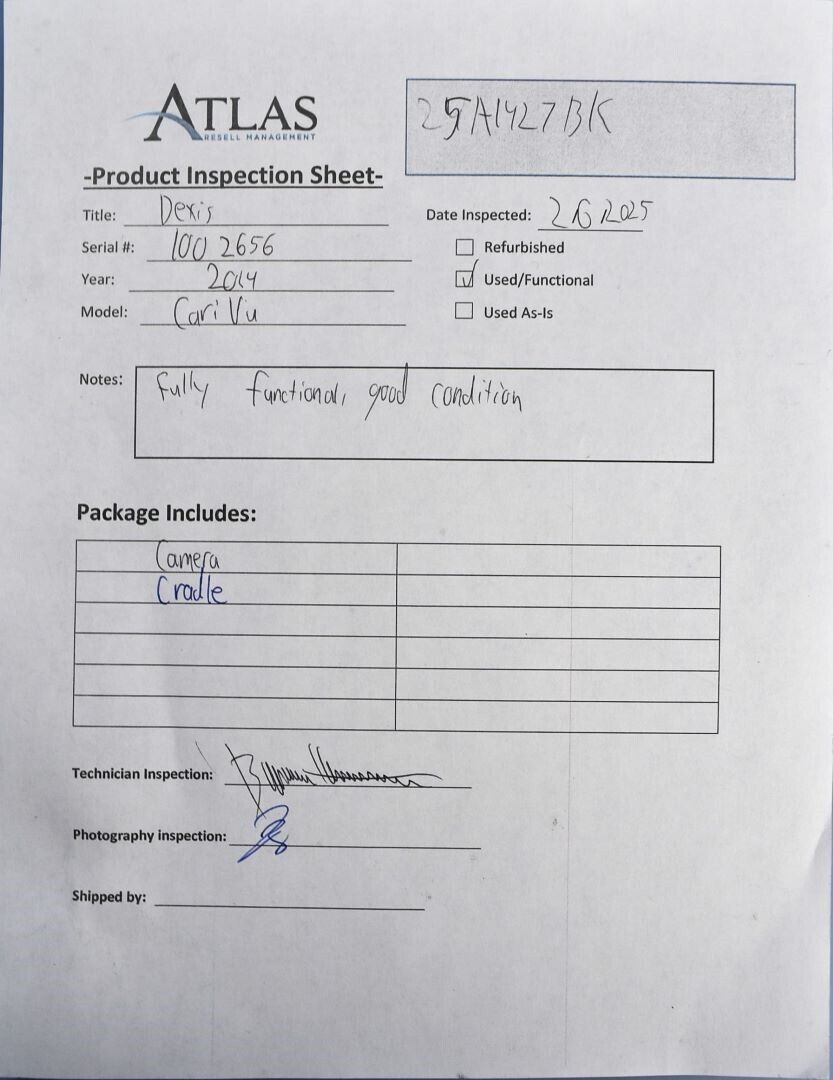 ATLAS
RESELL MANAGEMENT
25A1427BK
-Product Inspection Sheet-
Title: Dexis
Date Inspected: 2 6 2025
Serial #: 100 2656
Refurbished
Year: 2014
Used/Functional
Model: Cari Vu
Used As-Is
Notes: Fully functional, good condition
Package Includes:
Camera
Cradle
Technician Inspection:
Photography inspection:
Shipped by: